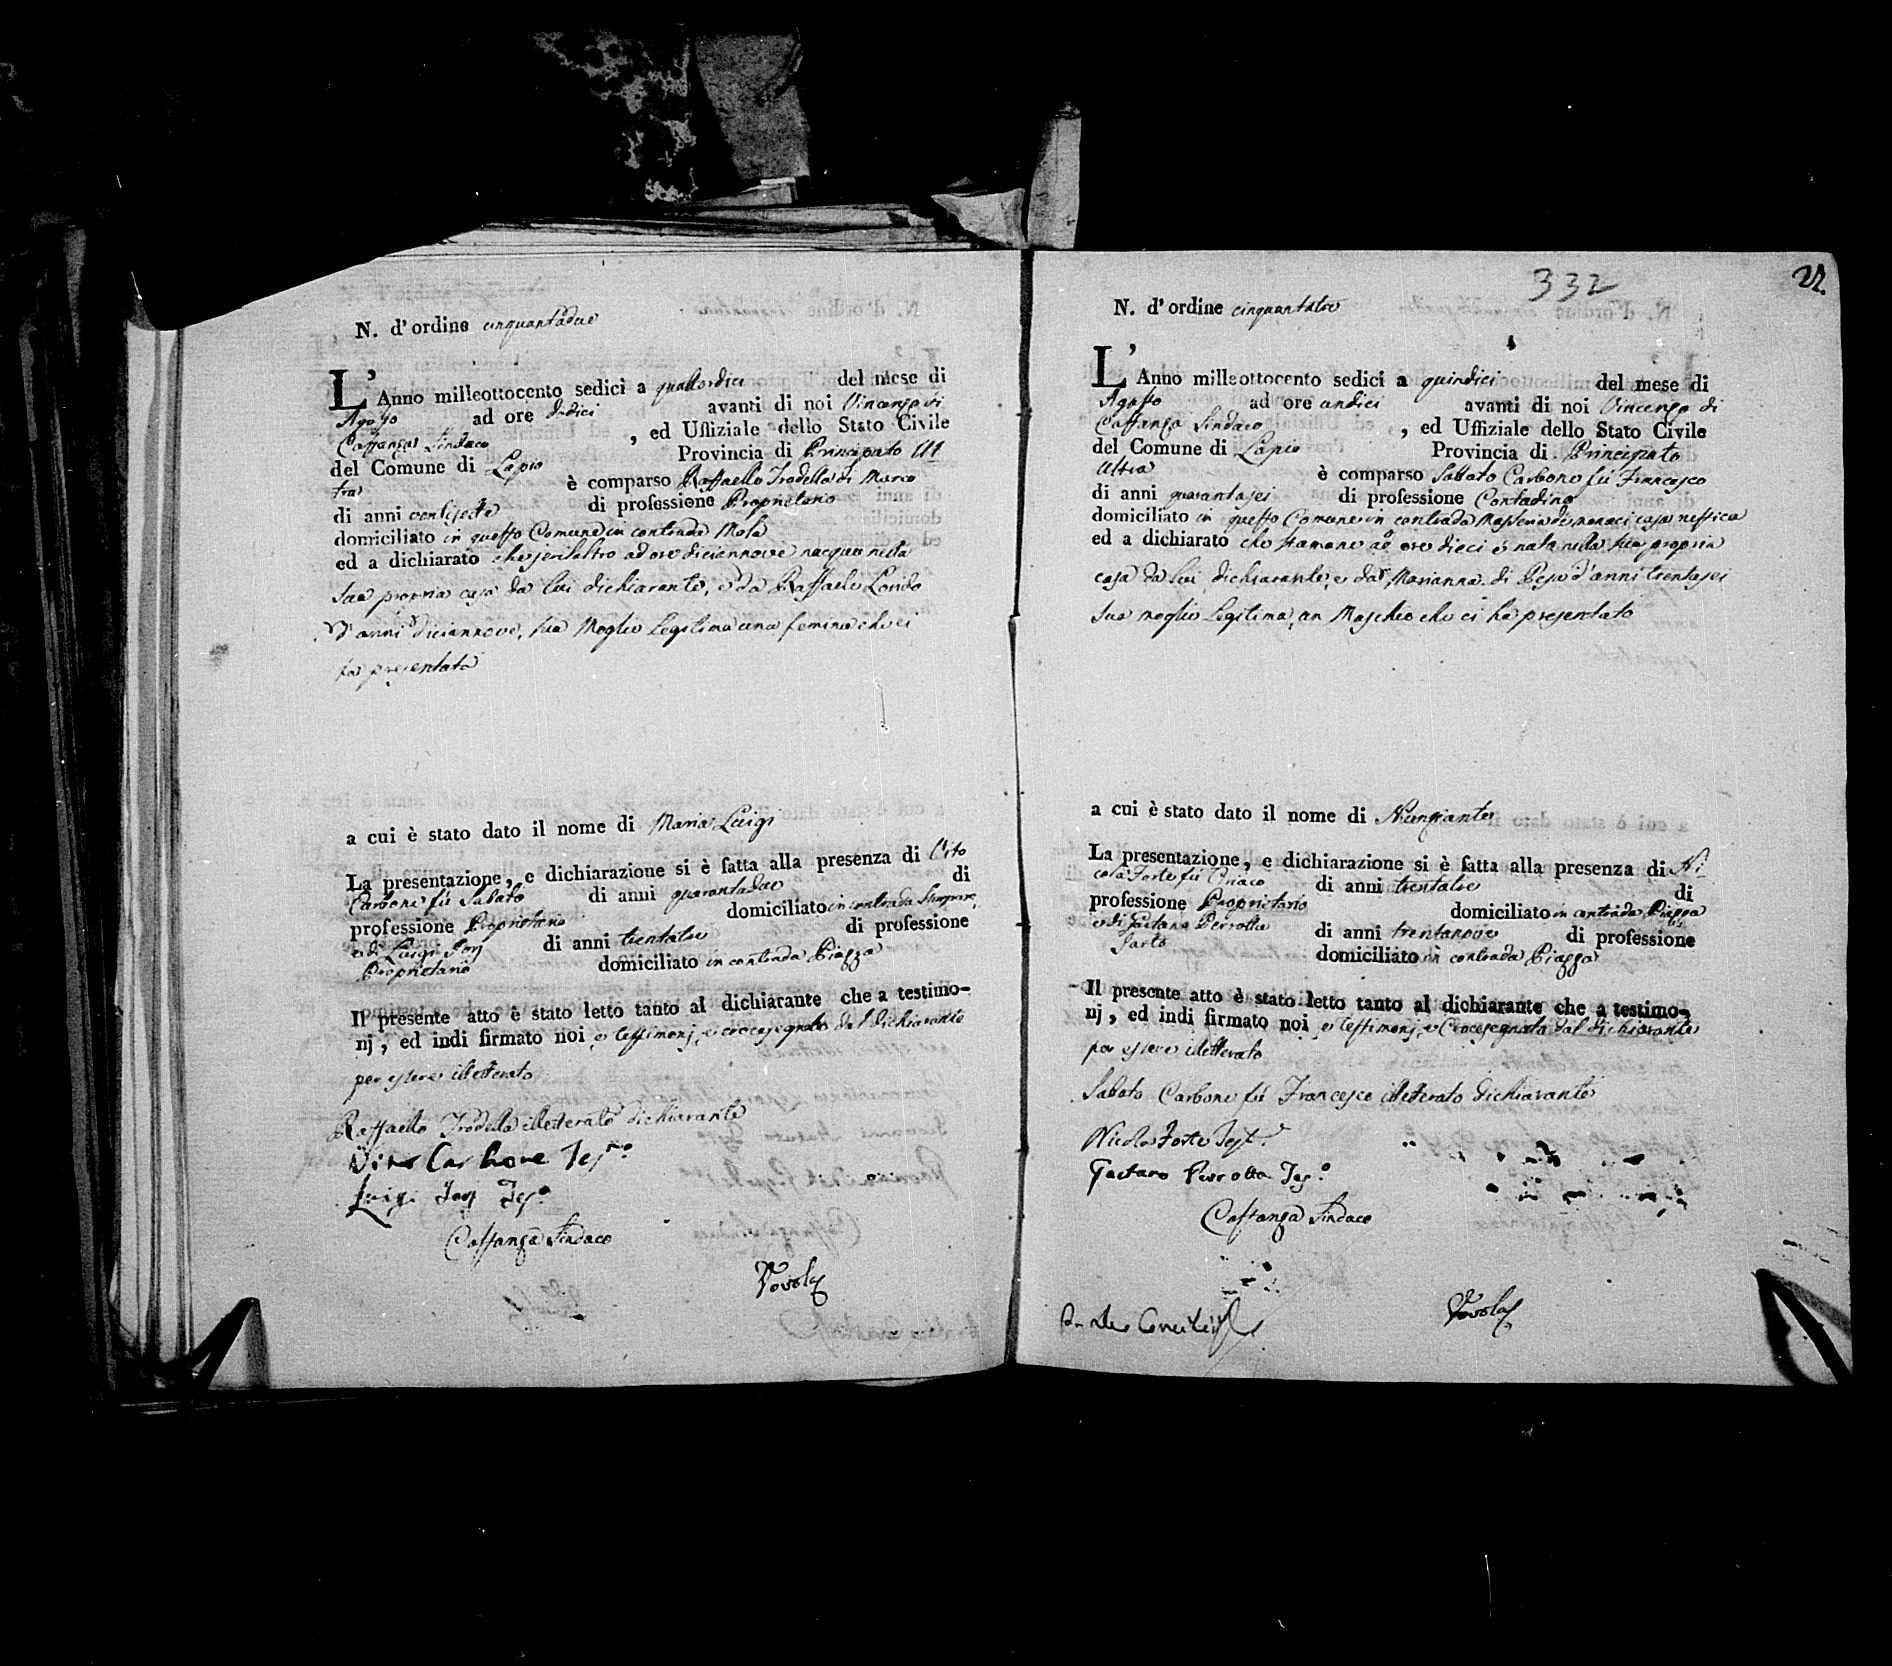 N. d'ordine cinquantadue
L'Anno milleottocento sedici a quattordici del mese di
Agosto ad ore dodici avanti di noi Vincenzo di
Castanza Sindaco , ed Uffiziale dello Stato Civile
del Comune di Lapio Provincia di Principato Ul
tra è comparso Raffaello Trodella di Marco
di anni ventisette di professione Proprietario
domiciliato in questo Comune in contrada Mola
ed a dichiarato che jeri l'altro ad ore diciannove nacque nella
sua propria casa da lui dichiarante, e da Raffaele
d'anni diciannove, sua Moglie Legitima una femina che ci
ha presentata
a cui è stato dato il nome di Maria Luigi
La presentazione, e dichiarazione si è fatta alla presenza di Vito
Carbone fù Sabato di anni quarantadue di
professione Proprietario domiciliato in contrada
e di Luigi di anni trentatre di professione
Proprietario domiciliato in contrada Piazza
Il presente atto è stato letto tanto al dichiarante che a testimo-
nj, ed indi firmato noi e testimonj, e crocesegnato dal dichiarante
per essere illetterato
Raffaello Trodella illetterato dichiarante
Vito Carbone Tes.mo
Luigi Tes.o
Castanza Sindaco
332
22.
N. d'ordine cinquantatre
L'Anno milleottocento sedici a quindici del mese di
Agosto ad ore undici avanti di noi Vincenzo di
Castanza Sindaco , ed Uffiziale dello Stato Civile
del Comune di Lapio Provincia di Principato
Ultra è comparso Sabato Carbone fù Francesco
di anni quarantasei di professione Contadino
domiciliato in questo Comune in contrada
ed a dichiarato che stamane ad ore dieci è nata nella sua propria
casa da lui dichiarante, e da Marianna di Peso d'anni trentasei
sua moglie Legitima, un Maschio che ci ha presentato
a cui è stato dato il nome di Nunziante
La presentazione, e dichiarazione si è fatta alla presenza di Ni-
cola Forte fù Ciriaco di anni trentatre di
professione Proprietario domiciliato in contrada Piazza
e di Gaetano Perrotta di anni trentanove di professione
Sarto domiciliato in contrada Piazza
Il presente atto è stato letto tanto al dichiarante che a testimo-
nj, ed indi firmato noi e testimonj, e Crocesegnato dal dichiarante
per essere illetterato
Sabato Carbone fù Francesco illetterato dichiarante
Nicola Forte Test.
Gaetano Perrotta Tes.o
Castanza Sindaco